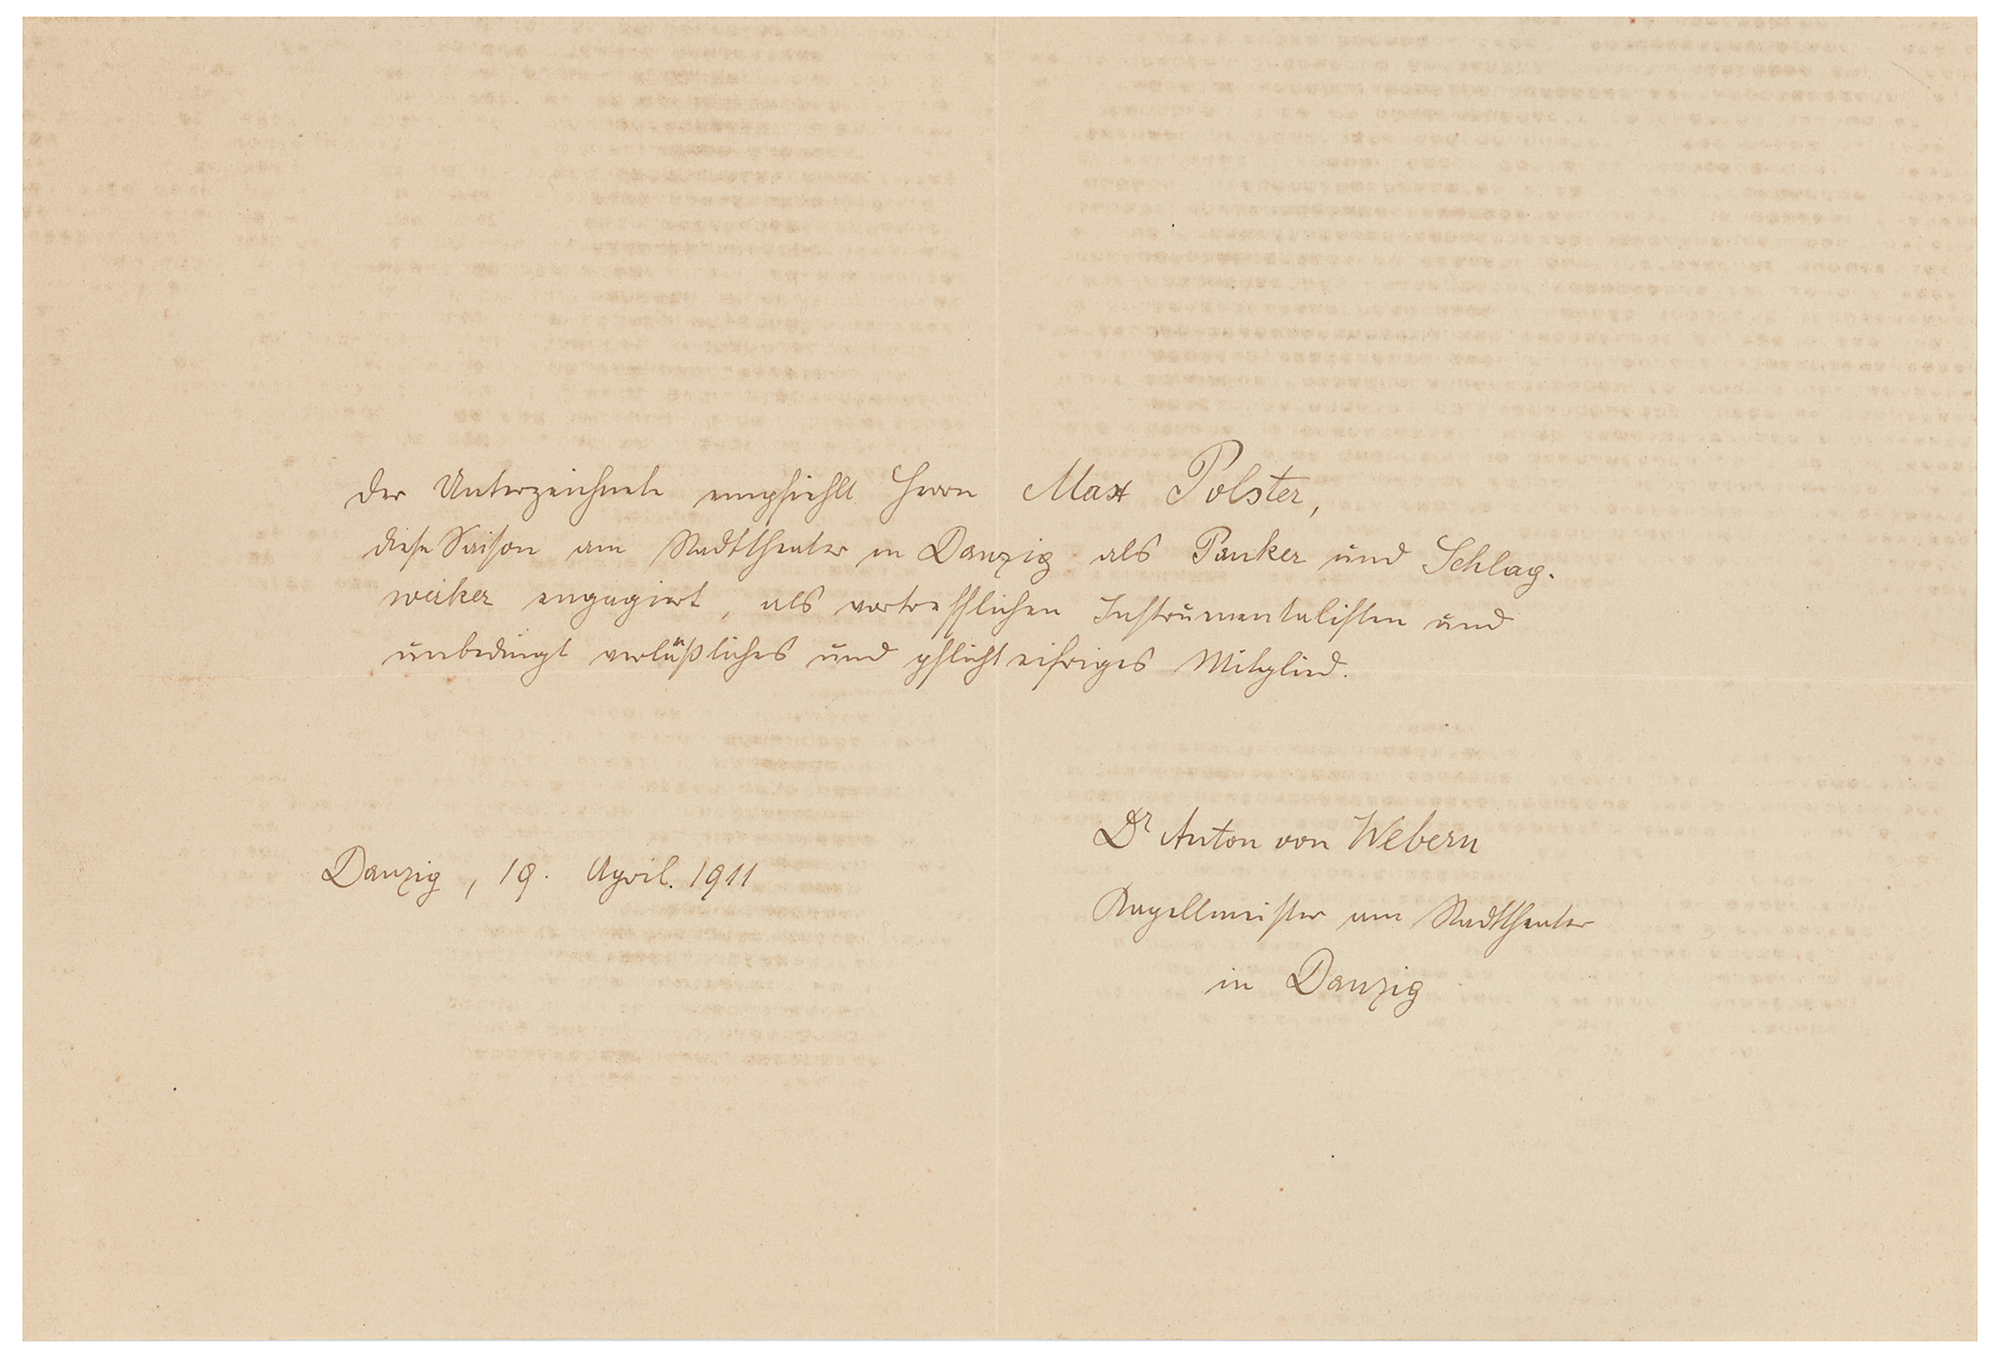 Der Unterzeichnete empfiehlt Herrn Max Polster,
diese Saison am Stadttheater in Danzig als Pauker und Schlag-
werker engagiert, als vortrefflichen Instrumentalisten und
unbedingt verläßliches und pflichteifriges Mitglied.
Dr Anton von Webern
Danzig, 19. April. 1911
Kapellmeister am Stadttheater
in Danzig